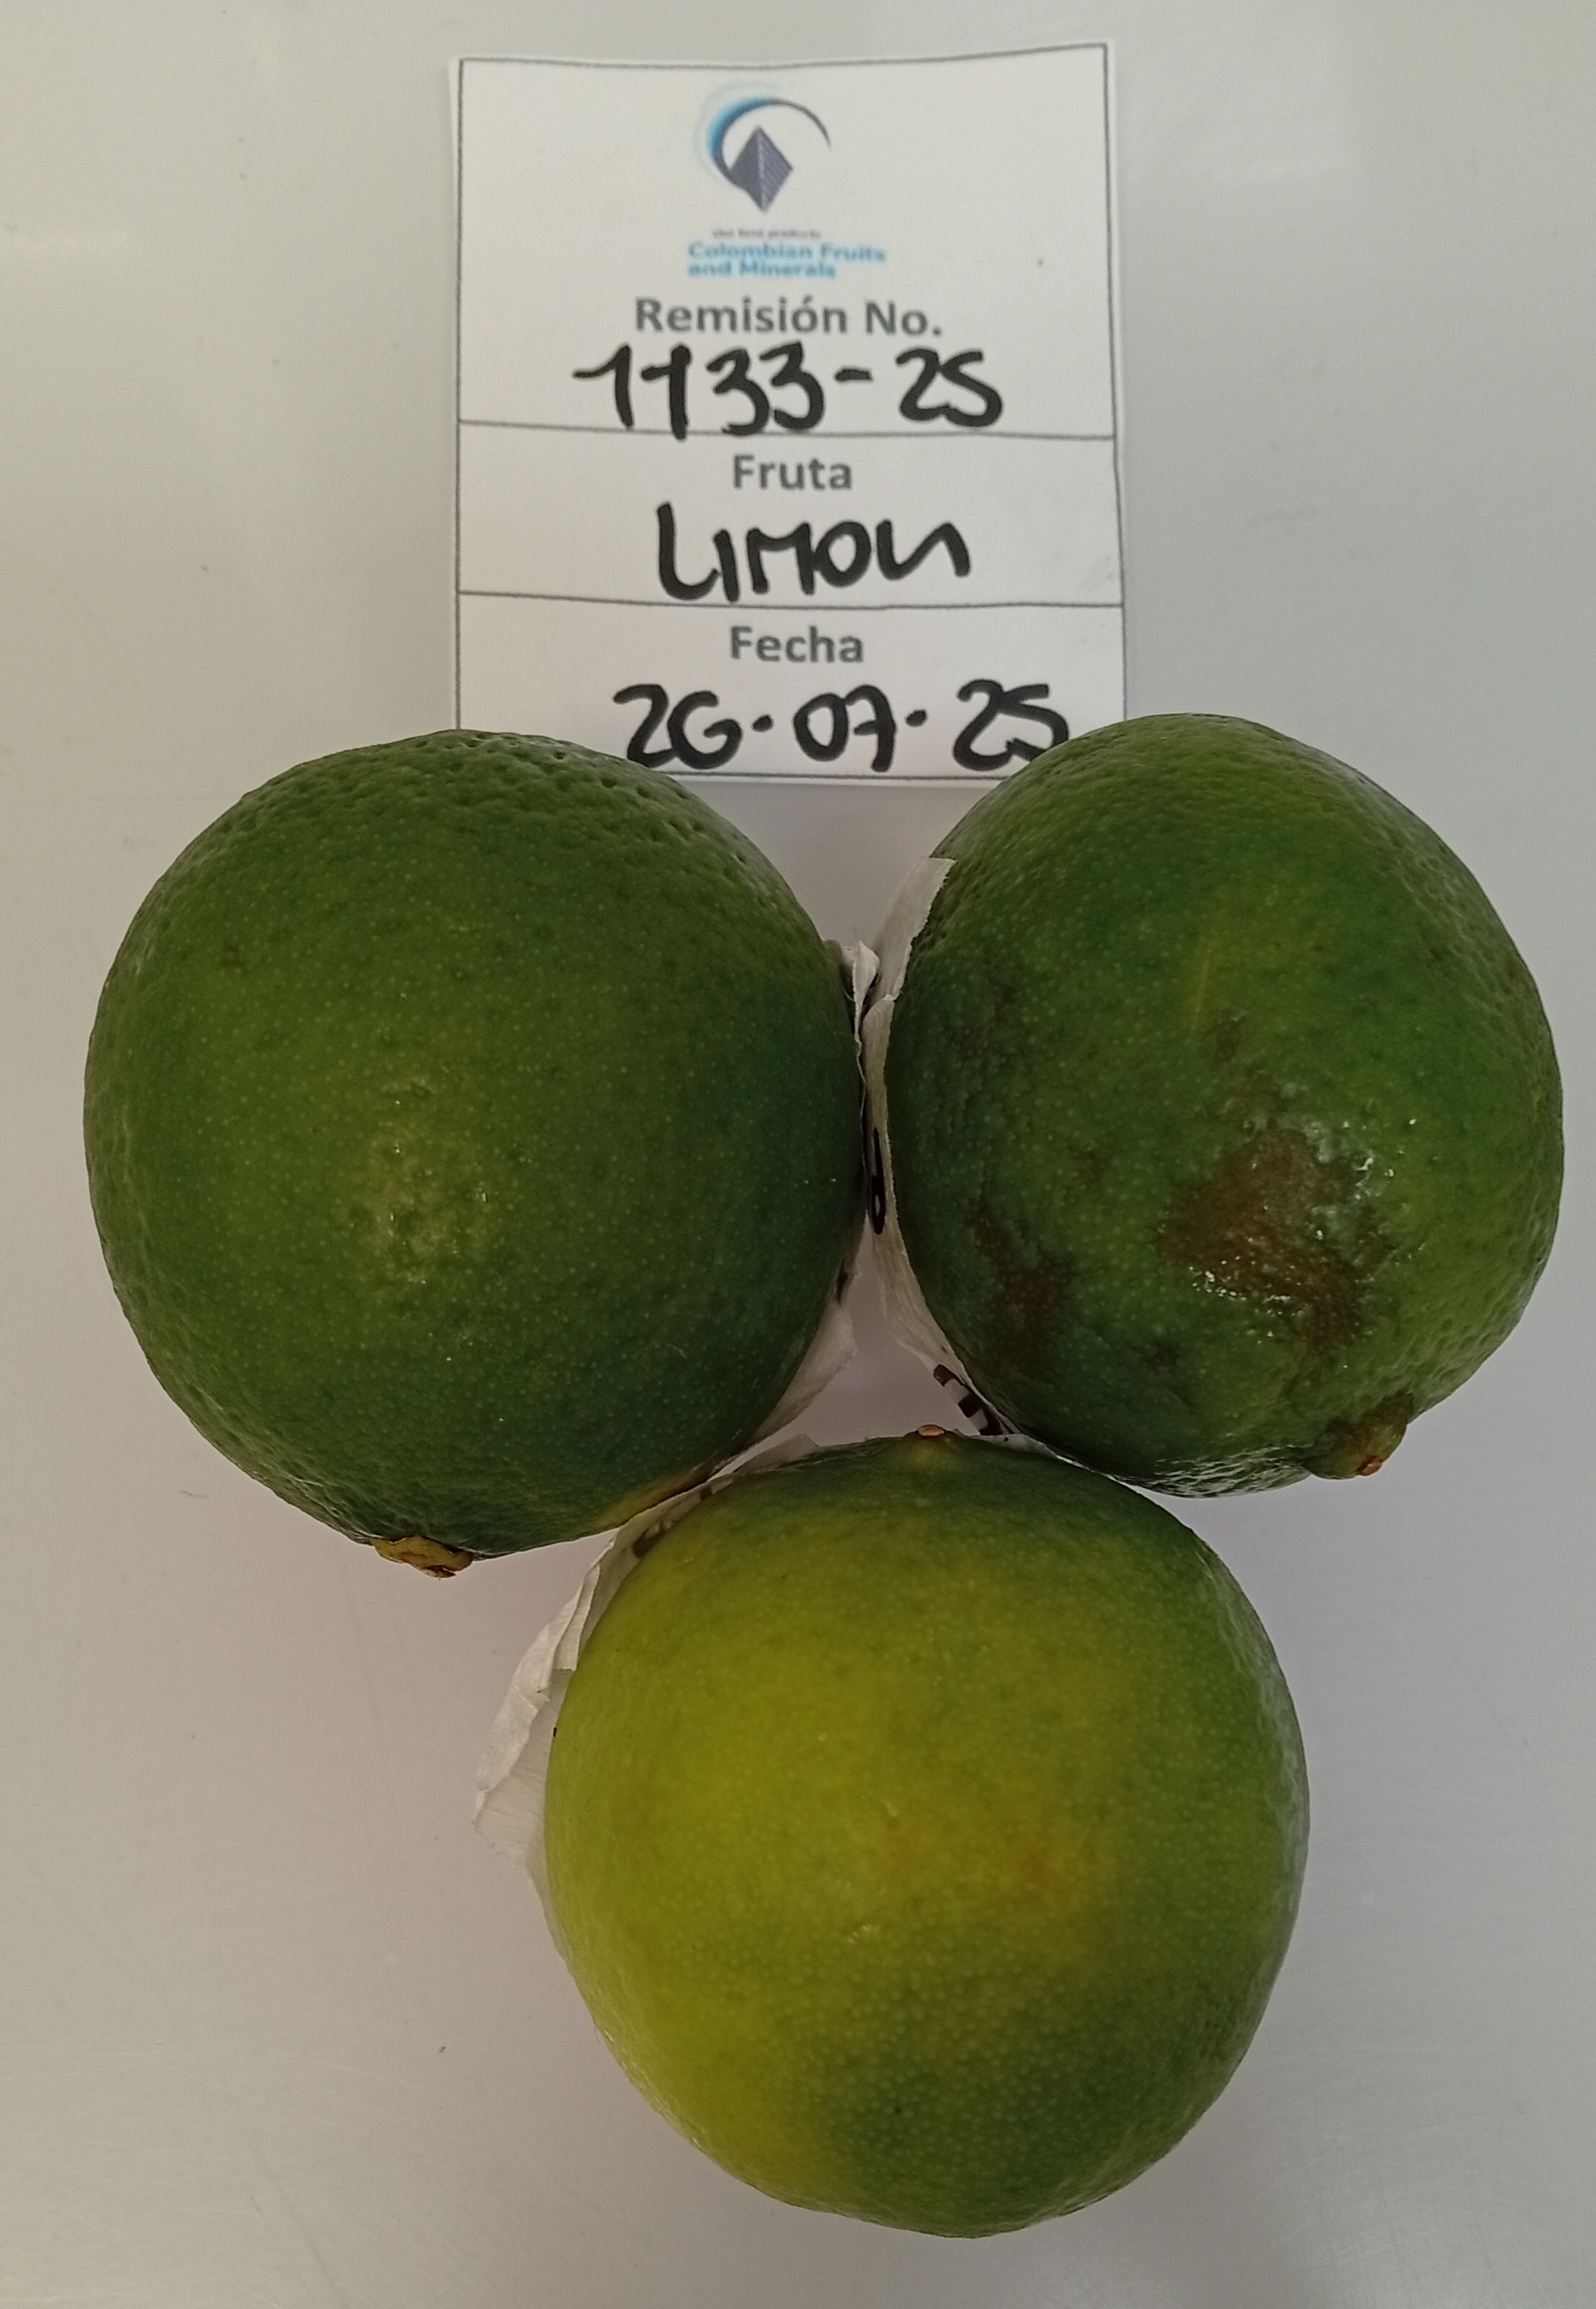 Our best products
Colombian Fruits
and Minerals
Remisión No.
1133-25
Fruta
LIMON
Fecha
26-07-25